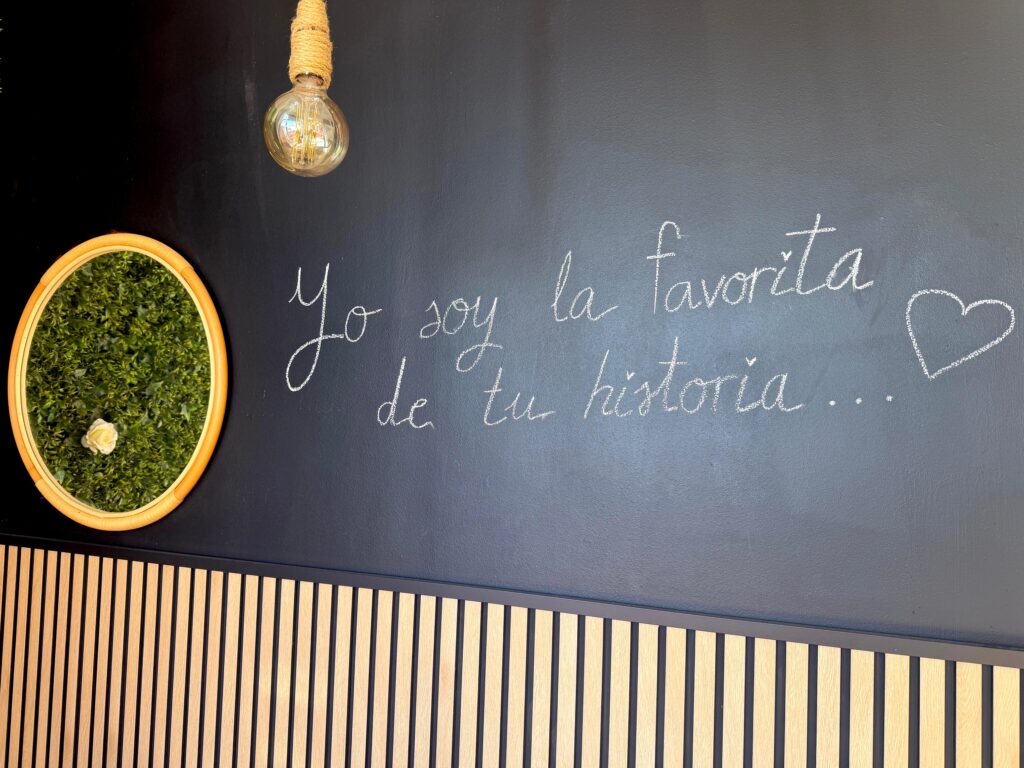 Yo soy la favorita
de tu historia...